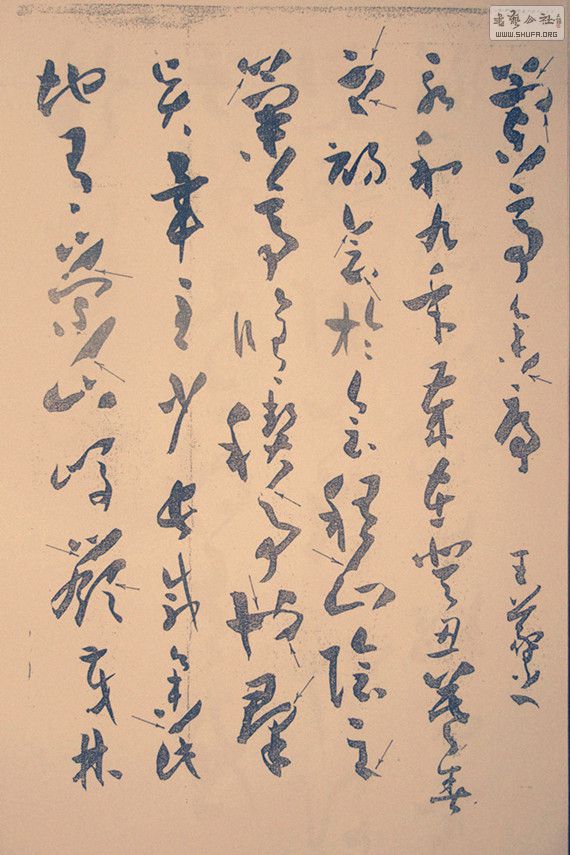 蘭亭集序 王羲之
永和九年歲在癸丑暮春
之初會於會稽山陰之
蘭亭脩稧事也群
賢畢至少長咸集此
地有崇山峻嶺茂林
书艺公社
WWW.SHUFA.ORG